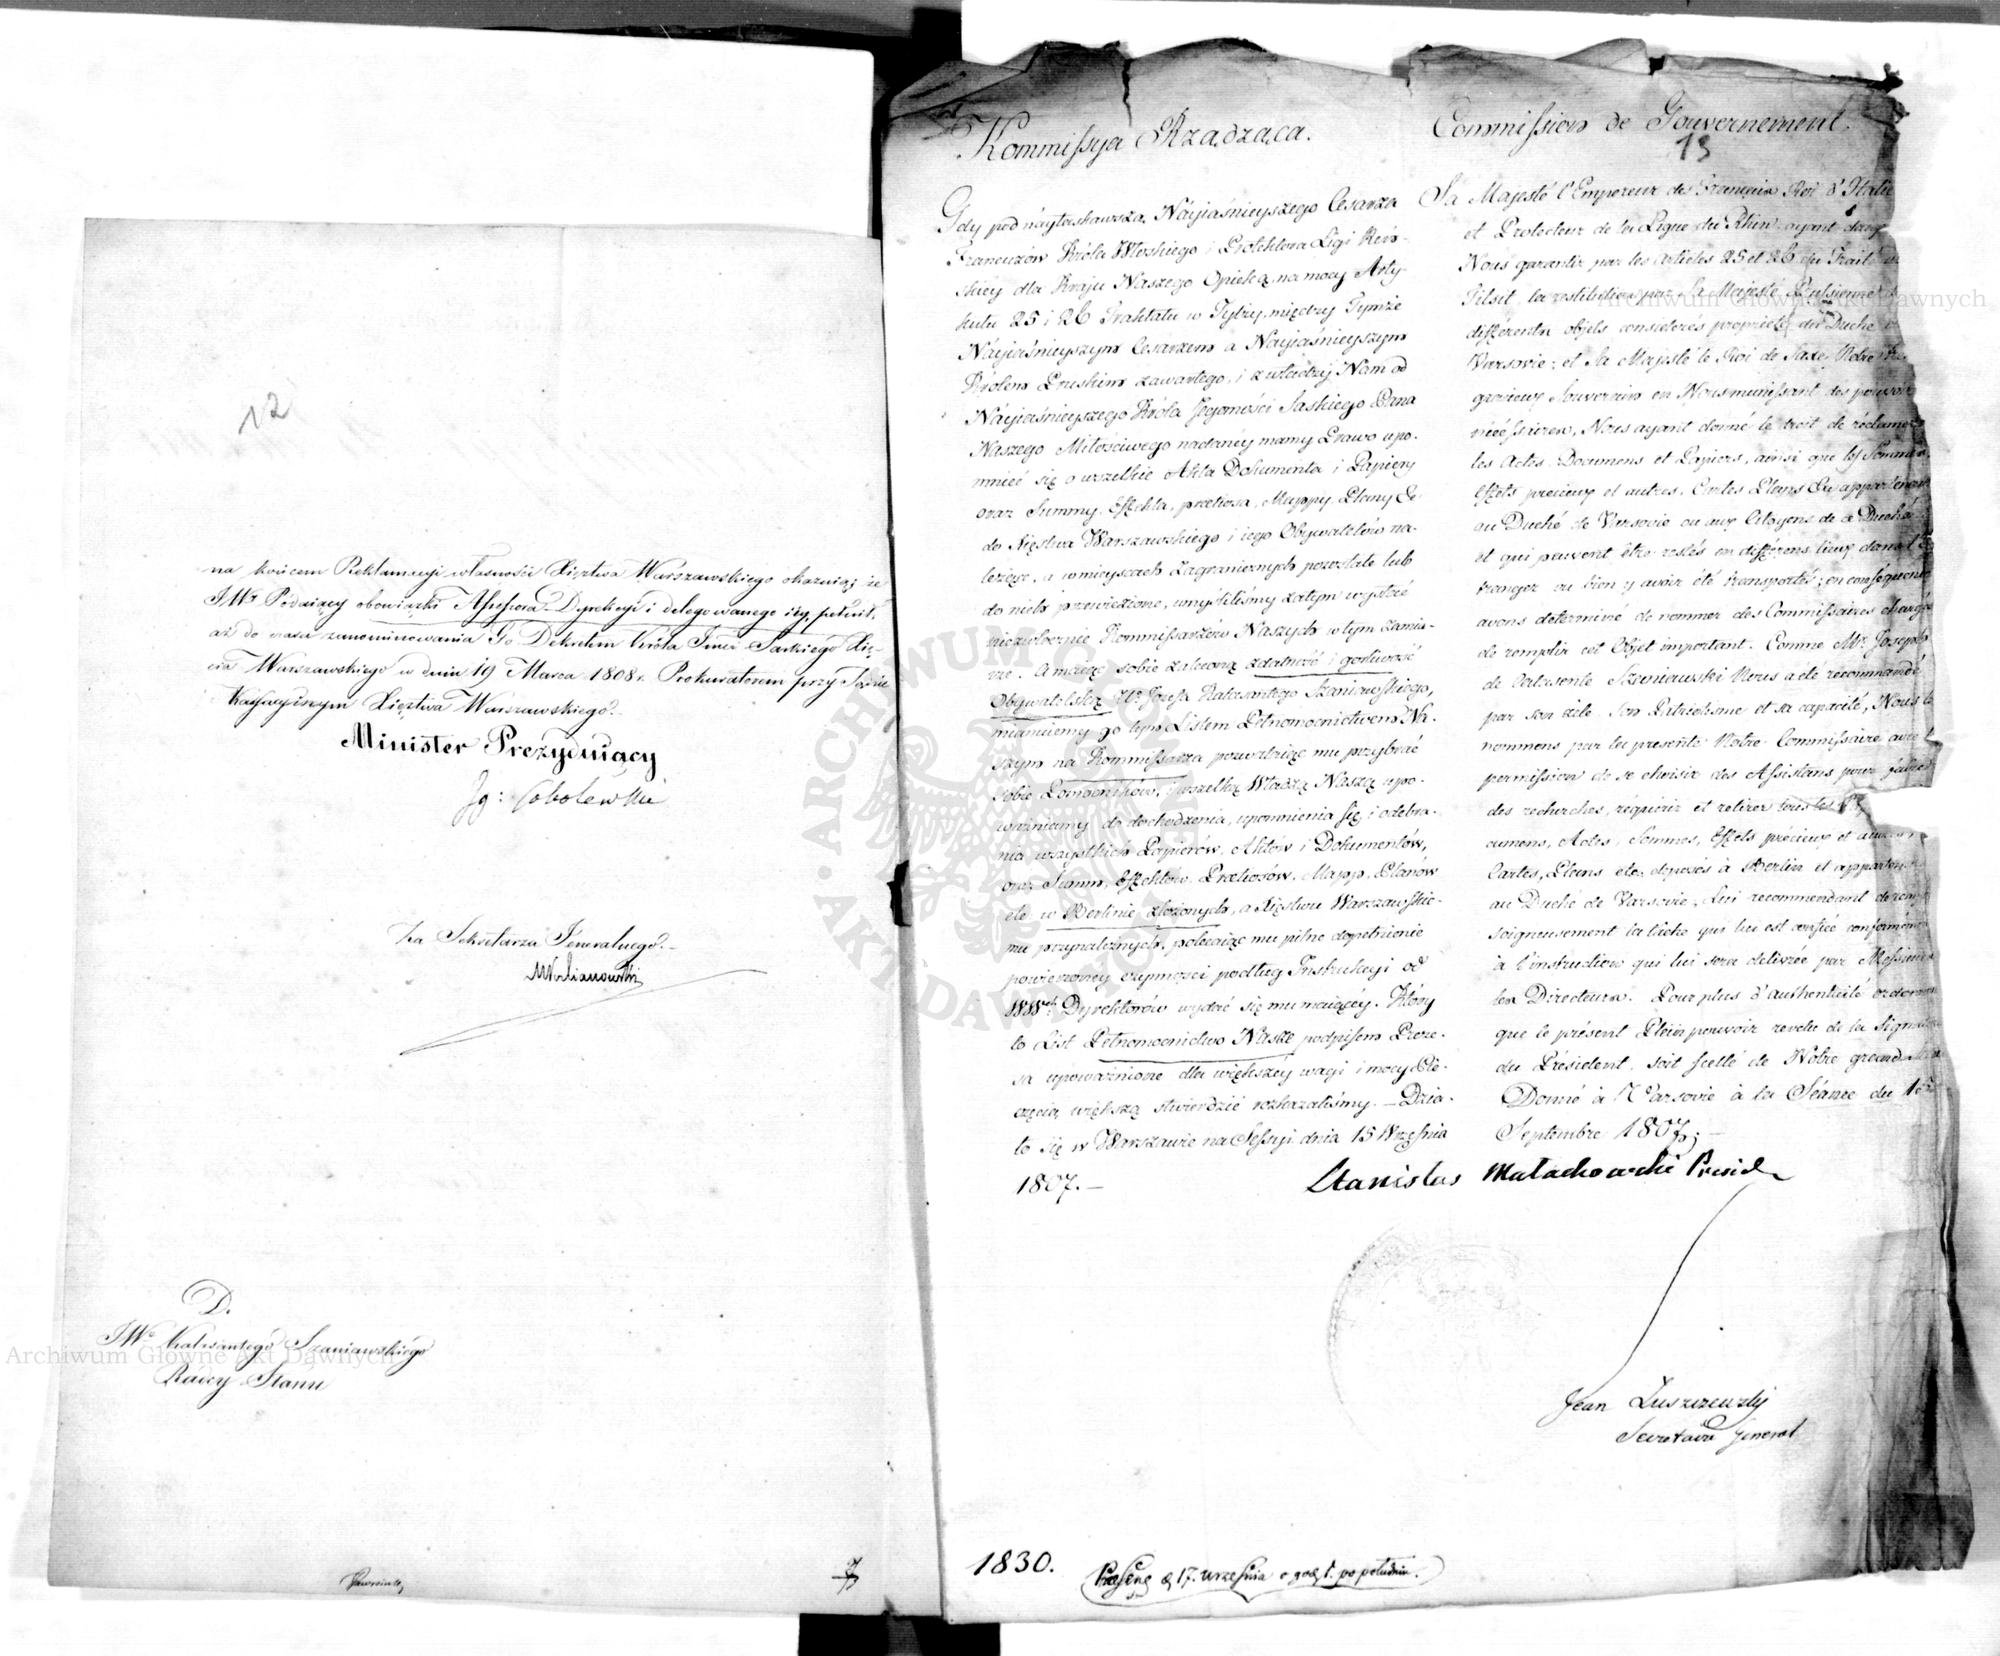 12
na końcem Reklamacyi własności Xięztwa Warszawskiego okazuią; że
JWP. Podaiący obowiązki Assessora Dyrekcyi i delegowanego
aż do czasu zanominowania Go Dekretem Króla Jmci Saskiego Xię-
cia Warszawskiego w dniu 19 Marca 1808 r. Prokuratorem przy Sądzie
Kassacyinym Xięztwa Warszawskiego.
Minister Prezyduiący
Jg: Sobolewski
Za Sekretarza Jeneralnego
D.
JWo Kalasantego Szaniawskiego
Radcy Stanu
Kommissya Rządząca.
Gdy pod nayłaskawszą Náyiaśnieyszego Cesarza
Francuzów Króla Włoskiego i Protektora Ligi Reń-
skiey dla Kraju Naszego Opieką, na mocy Arty-
kułu 25 i 26 Traktatu w Tylży między Tymże
Náyiaśnieyszym Cesarzem a Náyiaśnieyszym
Królem Pruskim zawartego, i z władzy Nam od
Náyiaśnieyszego Króla Jegomości Saskiego Pana
Naszego Miłościwego nadaney mamy Prawo upo-
mnieć się o wszelkie Akta Dokumenta i Papiery
oraz Summy, Effekta, praetiosa, Mappy, Plany &c
do Xięstwa Warszawskiego i iego Obywatelów na-
leżące, a w mieyscach Zagranicznych pozostałe lub
do nich przewiezione, umyśliliśmy zatym wysłać
niezwłocznie Kommissarzów Naszych w tym zamia-
rze. A maiąc sobie zaleconą zdatność i gorliwość
Obywatelską Ur. Józefa Kalasantego Szaniawskiego,
mianuiemy go tym Listem Pełnomocnictwem Na-
szym na Kommissarza pozwalaiąc mu przybrać
sobie Pomocników, i wszelką Władzą Naszą upo-
ważniamy do dochodzenia, upomnienia się i odebra-
nia wszystkich Papierów, Aktów i Dokumentów,
oraz Summ, Effektów, Pretiosów, Mapp, Planów
etc w Berlinie złożonych, a Xięstwu Warszawskie-
mu przynależnych, polecaiąc mu pilne dopełnienie
powierzoney czynności podług Instrukcyi od
Dyrektorów wydać się mu maiącéy. Który
to List Pełnomocnictwo Nasze podpisem Preze-
sa upoważnione dla większéy wagi i mocy Pie-
częcią większą stwierdzić rozkazaliśmy. — Dzia-
ło się w Warszawie na Sessyi dnia 15 Września
1807. —
Commission de Gouvernement.
13
Sa Majesté l'Empereur des Français Roi d'Italie
et Protecteur de la Ligue du Rhin ayant daigné
Nous garantir par les Articles 25 et 26 du Traité de
Tilsit, la restitution par Sa Majesté Prussienne
différents objets considerés propriété du Duché de
Varsovie; et Sa Majesté le Roi de Saxe Notre
gracieux Souverain en Nous munissant des pouvoirs
nécéssaires, Nous ayant donné le droit de réclamer
les Actes, Documens et Papiers, ainsi que les Sommes,
Effets précieux et autres, Cartes Plans &c appartenans
au Duché de Varsovie ou aux Citoyens de ce Duché
et qui peuvent être restés en différens lieux dans l'é-
tranger ou bien y avoir été transportés; en conséquence
avons déterminé de nommer des Commissaires chargés
de remplir cet Objet important. Comme Mr. Joseph
de Calasente Szaniawski Nous a été recommandé
par son zèle, Son Patriotisme et sa capacité, Nous le
nommons par la présente Notre Commissaire avec
permission de se choisir des Assistans pour faire
des recherches, réquérir et retirer tous les Do-
cumens, Actes, Sommes, Effets précieux et autres
Cartes, Plans etc. deposés à Berlin et appartenans
au Duché de Varsovie, Lui recommandant de remplir
soigneusement la tâche qui lui est confiée conformément
à l'instruction qui lui sera delivrée par Messieurs
les Directeurs. Pour plus d'authenticité ordonnons
que le présent Plein pouvoir revetu de la Signature
du Président, soit scellé de Notre grand
Donné à Varsovie à la Séance du
Septembre 1807. —
Stanislas Małachowski Presid
Jean Łuszczewski
Secretaire General
1830.
d 17. września o godz 1. po południu.